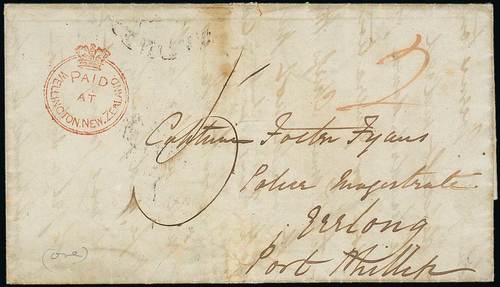 PAID
AT
WELLINGTON. NEW. ZEALAND
2
5
Captain Foster Fyans
Police Magestrate
Geelong
Port Phillip
(one)